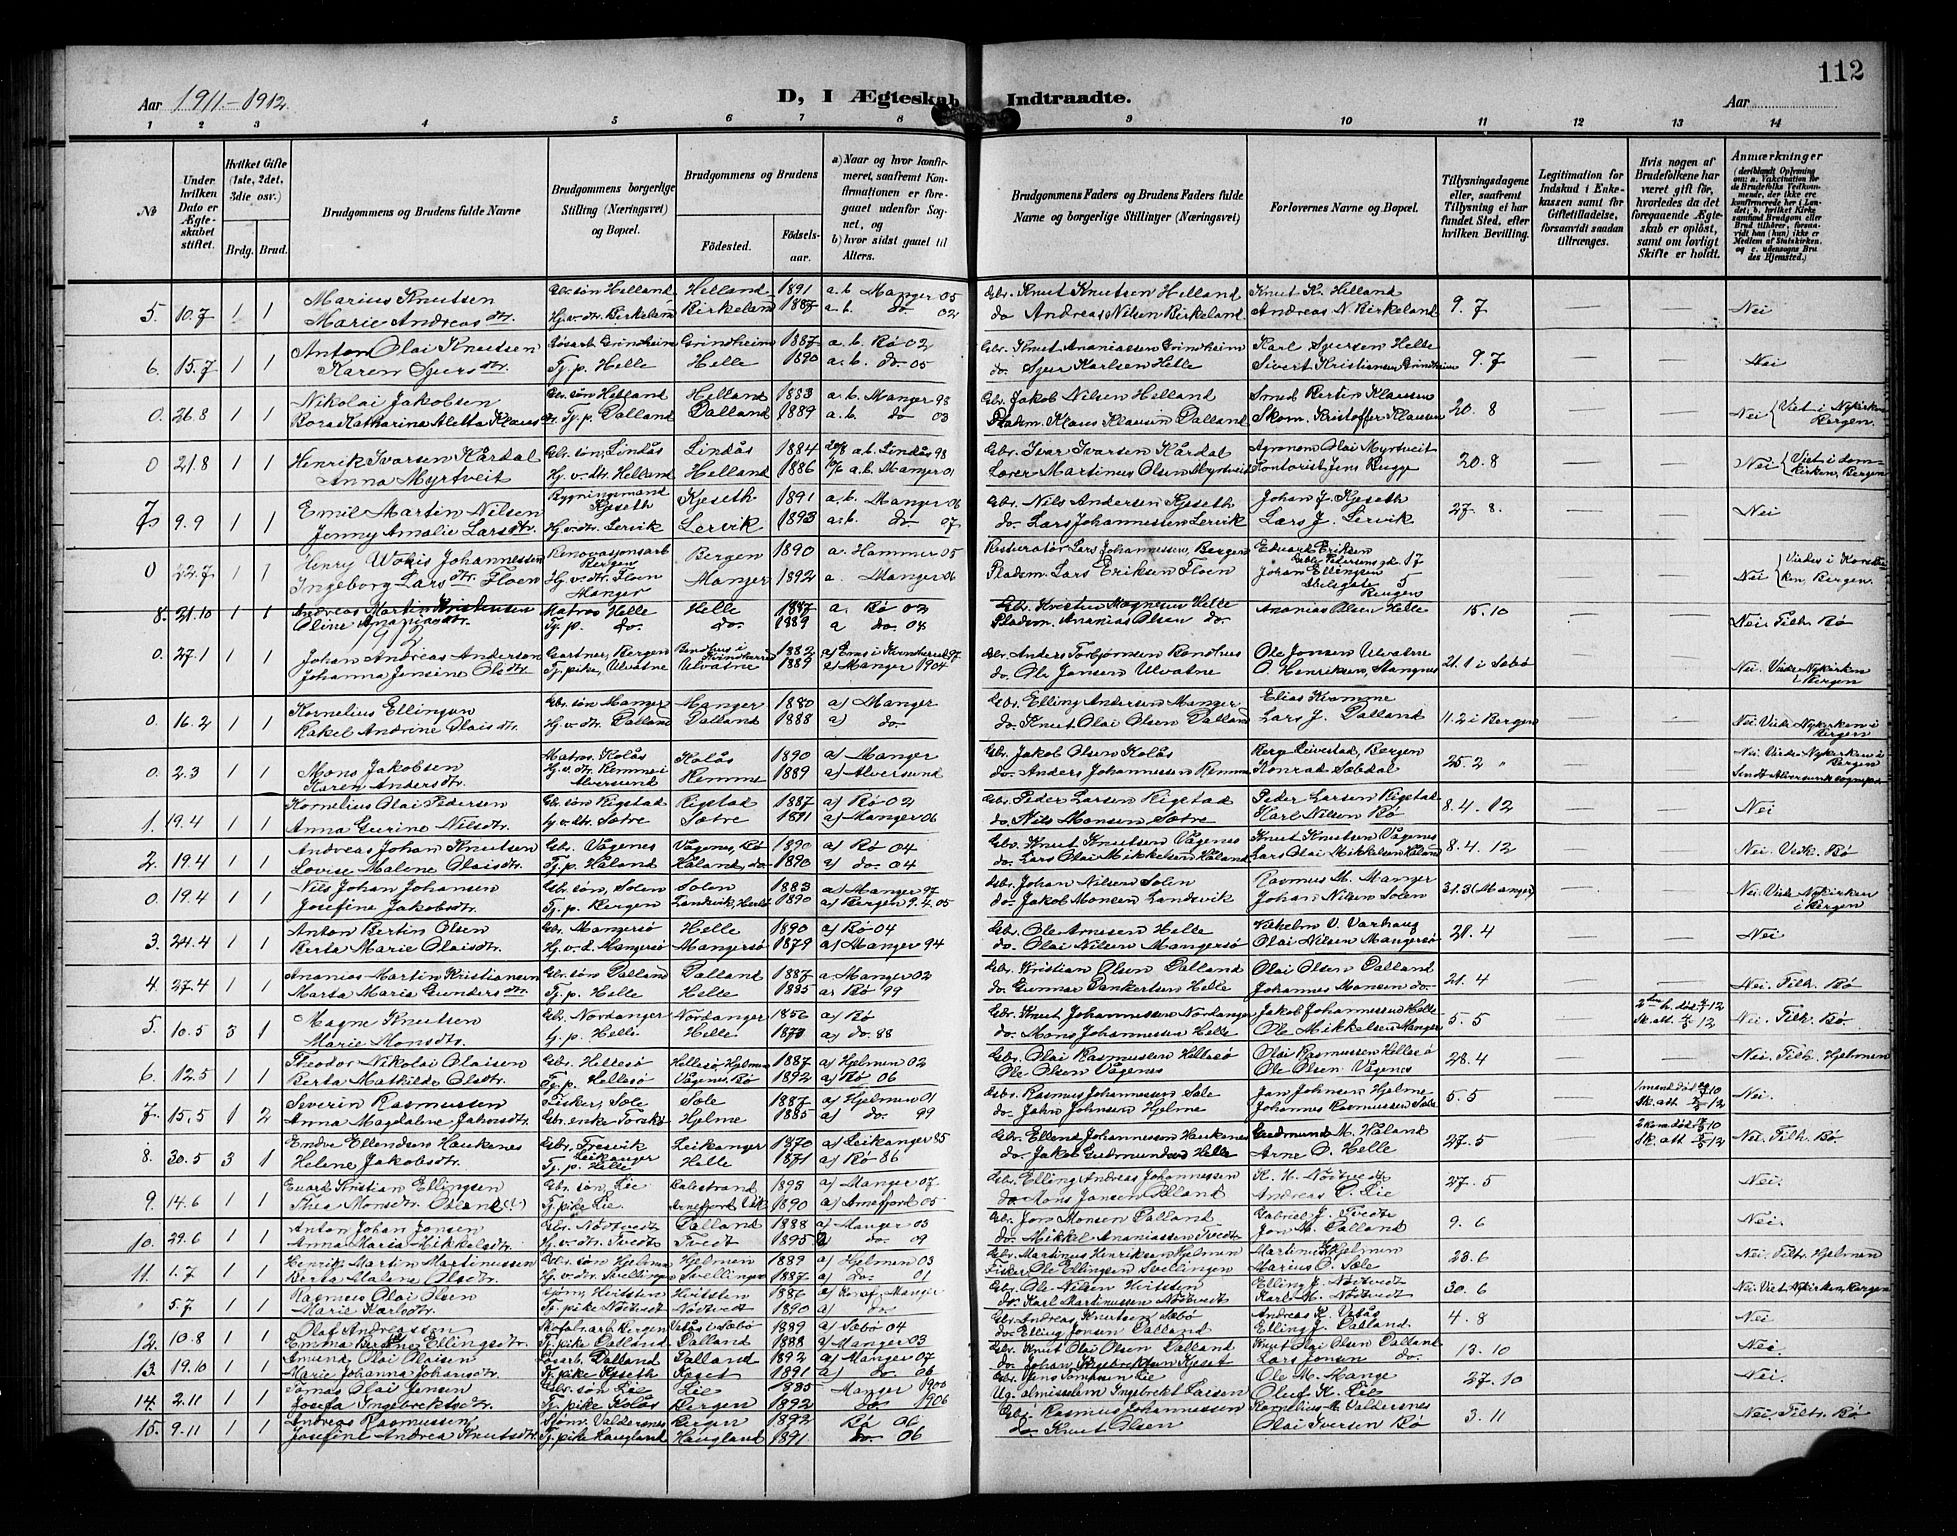 112
Aar 1911-1912. D, I Ægteskab Indtraadte. Aar
1 2 3 4 5 6 7 8 9 10 11 12 13 14
No
Under hvilken Dato er Ægteskabet stiftet.
Hvilket Gifte (1ste, 2det, 3die osv.)
Brdg. Brud.
Brudgommens og Brudens fulde Navne
Brudgommens borgerlige Stilling (Næringsvei) og Bopæl.
Brudgommens og Brudens
Födested. Födselsaar.
a) Naar og hvor konfirmeret, saafremt Konfirmationen er foregaaet udenfor Sognet, og
b) hvor sidst gaaet til Alters.
Brudgommens Faders og Brudens Faders fulde Navne og borgerlige Stillinger (Næringsvei)
Forlovernes Navne og Bopæl.
Tillysningsdagene eller, saafremt Tillysning ei har fundet Sted, efter hvilken Bevilling.
Legitimation for Indskud i Enkekassen samt for Giftetilladelse, forsaavidt saadan tiltrænges.
Hvis nogen af Brudefolkene har været gift før, hvorledes da det foregaaende Ægteskab er opløst, samt om lovligt Skifte er holdt.
Anmærkninger
5. 10.7 1 1 Marius Knutsen Gbr. søn Helland Helland 1891 a. b Manger 05 Gbr. Knut Knutsen Helland Knut K. Helland 9. 7 — — Nei
Marie Andreasdtr. Hj.v.dtr. Birkeland Birkeland 1887 a. b. do 02 do Andreas Nilsen Birkeland Andreas N. Birkeland
6. 15.7 1 1 Anton Olai Knutsen Grindheim Grindheim 1887 a. b. Bø 02 Gbr. Knut Ananiassen Grindheim Karl Sjursen Helle 9. 7 — — Nei
Karen Sjursdtr. Tj. p. Helle Helle 1890 a. b. do. 05 do. Sjur Karlsen Helle Sivert Kristiansen Grindheim
0. 26.8 1 1 Nikolai Jakobsen Gbr. søn Helland Helland 1883 a. b. Manger 98 Gbr. Jakob Nilsen Helland Smed Bertin Klausen 20. 8 — — Nei Viet i Nykirken Bergen.
Bora Katharina Aletta Klausdtr. Tj. p. Dalland Dalland 1889 a. b do 03 Pladsm. Klaus Klausen Dalland Skom. Kristoffer Klausen
0 21.8 1 1 Henrik Ivarsen Kårdal Gbr. søn, Lindås Lindås 1884 a. b. Lindås 98 Gbr. Ivar Ivarsen Kårdal Agronom Olai Myrtveit 20. 8 — — Nei Viet i domkirken, Bergen
Anna Myrtveit Hj. v. dtr. Helland Helland 1886 a. b. Manger 01 Lærer Martinus Olsen Myrtveit Kontorist Jens Rugg
7 9.9 1 1 Emil Martin Nilsen Bygningsmand Kjeseth Kjeseth 1891 a. b. Manger 06 Gbr. Nils Andersen Kjeseth Johan J. Kjeseth 27. 8. — — Nei
Jenny Amalie Larsdtr. Hj.v.dtr. Lervik Lervik 1893 a. b. do 07 do. Lars Johannessen Lervik Lars J. Lervik
0 22.7 1 1 Henry Johannessen Renovasjonsarb Bergen Bergen 1890 a. Hammer 05 Lars Johannessen, Bergen Edvard Eriksen — — Nei Bergen.
Ingeborg Larsdtr. Floen Hj. v. dtr. Floen Manger Manger 1892 a. Manger 06 Pladsm. Lars Eriksen Floen Johan Ellingsen Bergen
8. 21.10 1 1 Andreas Martin Kristensen Matros Helle Helle 1887 a. Bø 02 Gbr. Kristen Magnesen Helle Ananias Olsen Helle 15. 10 — — Nei. Tilh. Bø
Oline Ananiasdtr. Tj. p. do. do. 1889 a do. 04 Pladsm. Ananias Olsen do.
0. 27.1 1 1 Johan Andreas Andersen Gartner, Bergen 1882 Gbr. Anders Torbjørnsen Ole Jonsen Ulvatne 21.1 i Sæbø — — Nei. Viede Nykirken i Bergen
Johanna Jensine Olsdtr. Tj. pike, Ulvatne Ulvatne 1889 a) Manger 1904 do. Ole Jonsen Ulvatne O. Henriksen, Mangnes
0. 16.2 1 1 Kornelius Ellingsen Gbr. søn Manger Manger 1880 a) Manger Gbr. Elling Andersen Manger Elias Kromme 11.2 i Bergen — — Nei. Viede Nykirken i Bergen
Rakel Andrine Olaisdtr. Hj. v. dtr. Dalland Dalland 1888 a) do do Knut Olai Olsen Dalland Lars J. Dalland
0. 2.3 1 1 Mons Jakobsen Matros. Kolås Kolås 1890 a) Manger Gbr. Jakob Olsen Kolås Berge Leivestad, Bergen 25. 2 " — — Nei. Viede Nykirken i Bergen
Karen Andersdtr. Hj. v. dtr. Remme i Alversund Remme 1889 a) Alversund do. Anders Johannessen Remme Konrad Sæbdal
1. 19.4 1 1 Kornelius Olai Pedersen Gbr. søn Rigstad Rigstad 1887 a) Bø 02 Gbr. Peder Larsen Rigstad Peder Larsen Rigstad 8. 4. 12 — — Nei
Anna Gurine Nilsdtr. Hj. v. dtr. Sætre Sætre 1891 a) Manger 06 do. Nils Monsen Sætre Karl Nilsen Bø
2. 19.4 1 1 Andreas Johan Knutsen Gbr. Vågenes Vågenes, Bø 1890 a) Bø 04 Gbr. Knut Knutsen Vågenes Knut Knutsen Vågenes 8. 4. 12 — — Nei. Bø
Lovise Malene Olaisdtr. Tj. p. Håland Håland, do 1890 a) do. 04 do. Lars Olai Mikkelsen Håland Lars Olai Mikkelsen Håland
0. 19.4 1 1 Nils Johan Johansen Gbr. søn, Solen Solen 1883 a) Manger 97 Gbr. Johan Nilsen Solen Rasmus M. Manger 31.3 (Manger) — — Nei. Viede Nykirken i Bergen
Josefine Jakobsdtr. Tj. p. Bergen Landsvik, Herlø 1890 a) Bergen 9. 4. 05 do. Jakob Monsen Landsvik Johan Nilsen Solen
3. 24.4 1 1 Anton Bertin Olsen Gbr. Mangersø Helle 1890 a) Bø 04 Gbr. Ole Arnesen Helle Vilhelm V. Varhaug 21. 4 — — Nei
Berta Marie Olaisdtr. Hj. v. d. Mangersø Mangersø 1879 a) Manger 94 do. Olai Nilsen Mangersø Olai Nilsen Mangersø
4. 27.4 1 1 Ananias Martin Kristiansen Gbr. søn Dalland Dalland 1887 a. Manger 02 Gbr. Kristian Olsen Dalland Olai Olsen Dalland 21. 4 — — Nei. Tilh. Bø
Marta Marie Gundersdtr. Tj. p. Helle Helle 1885 a. Bø 99 do. Gunnar Dankertsen Helle Johannes Monsen do.
5. 10.5 3 1 Magne Knutsen Gbr. Nordanger Nordanger 1856 a) Bø Gbr. Knut Johannessen Nordanger Jakob Johannessen Helle 5. 5 — Nei. Tilh. Bø
Marie Monsdtr. Tj. p. Helle Helle a) do. 88 do. Mons Johannessen Helle Ole Mikkelsen Manger
6. 12.5 1 1 Theodor Nikolai Olaisen Gbr. Hellesø Hellesø, Hjelmen 1887 a) Hjelmen 02 Gbr. Olai Rasmussen Hellesø Olai Rasmussen Hellesø 28. 4 — — Nei. Tilh. Hjelmen
Berta Mathilde Olsdtr. Tj. p. Hellesø Vågenes, Bø 1892 a) Bø 06 Ole Olsen Vågenes Ole Olsen Vågenes
7. 15.5 1 2 Severin Rasmussen Fisker, Sæle Sæle 1887 a) Hjelmen 01 Gbr. Rasmus Johannessen Sæle Jan Johnsen Hjelme 5. 5 — Nei.
Anna Magdalene Jahnsdtr. Gbr. enke Hjelme 1885 a) do. 99 do. Jahn Johnsen Hjelme Johannes Rasmussen Sæle
8. 30.5 3 1 Endre Ellendsen Haukanes Gbr. Leikanger Leikanger 1870 a) Leikanger 85 Gbr. Ellend Johannessen Haukanes Gudmund M. Håland 27. 5 — Nei. Tilh. Bø
Helene Jakobsdtr. Tj. p. Helle Helle 1871 a) Bø 86 do. Jakob Gudmundsen Helle Arne O. Helle
9. 14.6 1 1 Kristian Ellingsen Gbr. søn, Lie Balestrand 1893 a) Manger 07 Gbr. Elling Andreas Johannessen K. H. Nötvedt 27. 5 — — Nei.
Thea Monsdtr. Öland Tj. pike Lie Arnefjord 1890 a) Arnefjord 05 do. Mons Jansen Öland Andreas O. Lie
10. 29.6 1 1 Anton Johan Jonsen Gbr. Nötvedt Dalland 1888 a) Manger 03 Gbr. Jon Monsen Dalland Gabriel J. Tvedt 9. 6 — — Nei.
Anna Maria Mikkelsdtr. Hj. v. dtr. Tvedt Tvedt 1895 a) do. 09 do. Mikkel Ananiassen Tvedt Jon M. Dalland
11. 1.7 1 1 Henrik Martin Martinussen Gbr. søn Hjelmen Hjelmen 1889 a) Hjelmen 03 Gbr. Martinus Henriksen Hjelmen Martin Hjelmen 23. 6 — — Nei. Tilh. Hjelmen
Berta Malene Olsdtr. Hj. v. dtr. Svellingen Svellingen 1887 a) do. 01 Fisker Ole Ellingsen Svellingen Marius O. Sæle
" 5.7 1 1 Rasmus Olai Olsen Hvitsten Hvitsten 1886 a) Konf. Manger Gbr. Ole Nilsen Hvitsten Elling J. Nötvedt 30. 6 — — Nei. Viet Nykirken Bergen
Marie Karlsdtr. Tj. pike Nötvedt Nötvedt 1890 a) do. do. Karl Martinussen Nötvedt Karl M. Nötvedt
12. 10.8 1 1 Olaf Andreassen Asfaltarb. Bergen Vetås i Sæbø 1889 a) Sæbø 04 Gbr. Andreas Knutsen Sæbø Andreas K. Vetås 4. 8 — — Nei
Emma Ellingsdtr. Tj. pike Dalland Dalland 1888 a) Manger 03 do. Elling Jonsen Dalland Elling J. Dalland
13. 19.10 1 1 Amund Olai Olaisen Dalland Dalland 1892 a) Manger 07 Gbr. Knut Olai Olsen Dalland Knut Olai Olsen Dalland 13. 10 — — Nei.
Marie Johanna Johansdtr. Tj. pike Kjeseth 1891 a) do. 06 do. Johan Ingebrektsen Kjeset Lars Jonsen do.
14. 2.11 1 1 Tomas Olai Jensen Gbr. søn Lie Lie 1885 Manger 1900 Gbr. Jens Tomassen Lie Ole M. Mange 27. 10 — — Nei.
Josefa Ingebrektsdtr. Tj. pike Kolås Bergen 1892 do. 1906 Ug. almisselem Ingebrekt Larsen Oluf K. Lie
15. 9.11 1 1 Andreas Rasmussen Valdersnes Bergen 1892 Bø 06 Gbr. Rasmus Johannessen Kornelius M. Valdersnes 3. 11 — — Nei. Tilh. Bø
Josefine Andrea Knutsdtr. Tj. pike Haugland Haugland 1891 do. 06 do. Knut Olsen Olai Iversen Bø